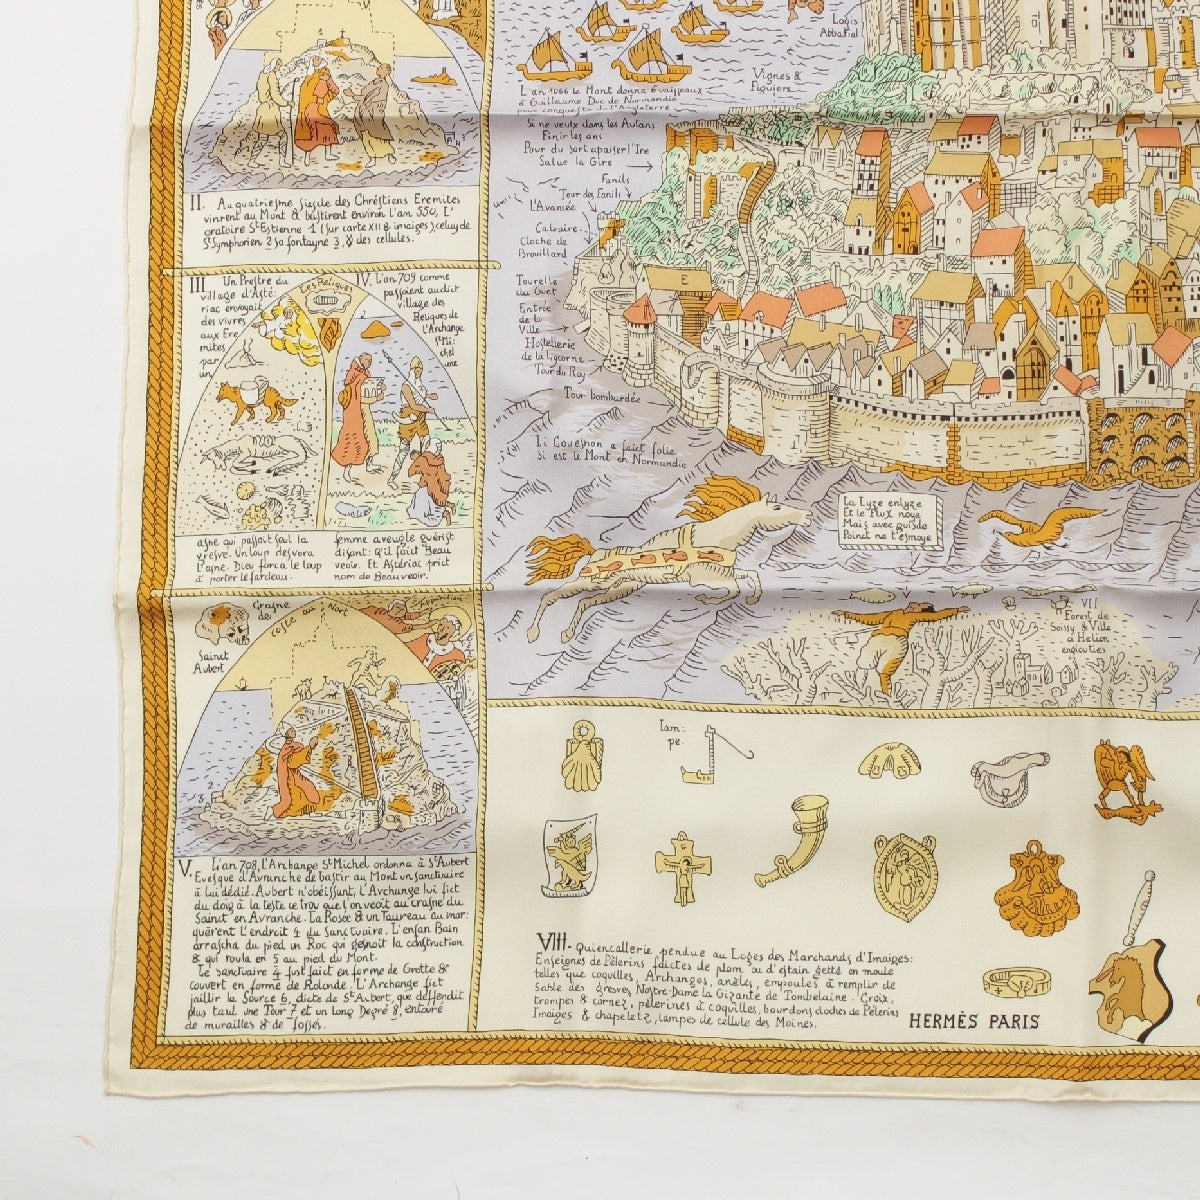 Logis
Abbatial
Vignes &
Figuiers
L'an 1066 le Mont donna 6 vaisseaux
à Guillaume Duc de Normandie
pour conqueste de l'Angleterre
Si ne veulx dans les Autans
Finir tes ans
Pour du sort apaiser l'Ire
Salue la Gire
Fanils
Tour des Fanils
L'Avancée
Calvaire
Cloche de
Brouillard
Tourelle
du Guet
Entrée
de la
Ville
Hostellerie
de la Lycorne
Tour du Roy
Tour bombardée
E
Li Couesnon a faict folie
Si est le Mont en Normandie
La Lyze enlyze
Et le Flux noye
Mais avec guisde
Poinct ne t'esmoye
VII
Forest de
Soissy & Ville
d'Helion
engloutie
II. Au quatriesme siesde des Chréstiens Eremites
vinrent au Mont & bastirent environ l'an 550, L'
oratoire St Estienne 1 (sur carte XII & images), celuy de
St Symphorien 2 sa fontayne 3, & des cellules.
III Un Prestre du
village d'Asté:
riac envoyait
des vivres
aux Ere
mites
par
un
asne qui passoit sul la
gresve. Un loup desvora
l'asne. Dieu força le loup
à porter le fardeau.
Les Reliques
IV. L'an 709 comme
passoient audict
village des
Reliques de
l'Archange
St Mi:
chel
une
femme aveugle guérist
disant: q'il faict Beau
veoir. Et Astériac prict
nom de Beauveoir.
Crasne
de
Sainct
Aubert
costé au Nort
Apparition
V. L'an 708, L'Archange St Michel ordonna à St Aubert
Evesque d'Avranche de bastir au Mont un sanctuaire
à lui dédié. Aubert n'obéissant, l'Archange lui fict
du doig à la teste ce trou que l'on veoit au crasne du
Sainct en Avranche. La Rosée & un Taureau au mar:
quèrent l'endroit 4 du Sanctuaire. L'enfan Bain
arrascha du pied un Roc qui gesnoit la construction
& qui roula en 5 au pied du Mont.
Le sanctuaire 4 fust faict en forme de Grotte &
couvert en forme de Rotonde. L'Archange fict
jaillir la Source 6, dicte de St Aubert, que deffendit
plus tard une Tour 7 et un long Degré 8, entouré
de murailles & de fossés.
Lam:
pe.
VIII. Quiencallerie pendue au Loges des Marchands d'Imaiges:
Enseignes de Pèlerins faictes de plom ou d'estain getté en moule
telles que coquilles, Archanges, anèles, empoules à remplir de
Sable des gresves, Nostre-Dame la Gizante de Tombelaine. Croix,
trompes & cornez, pèlerines à coquilles, bourdons cloches de Pèlerins
Imaiges & chapeletz, lampes de cellule des Moines.
HERMÈS PARIS